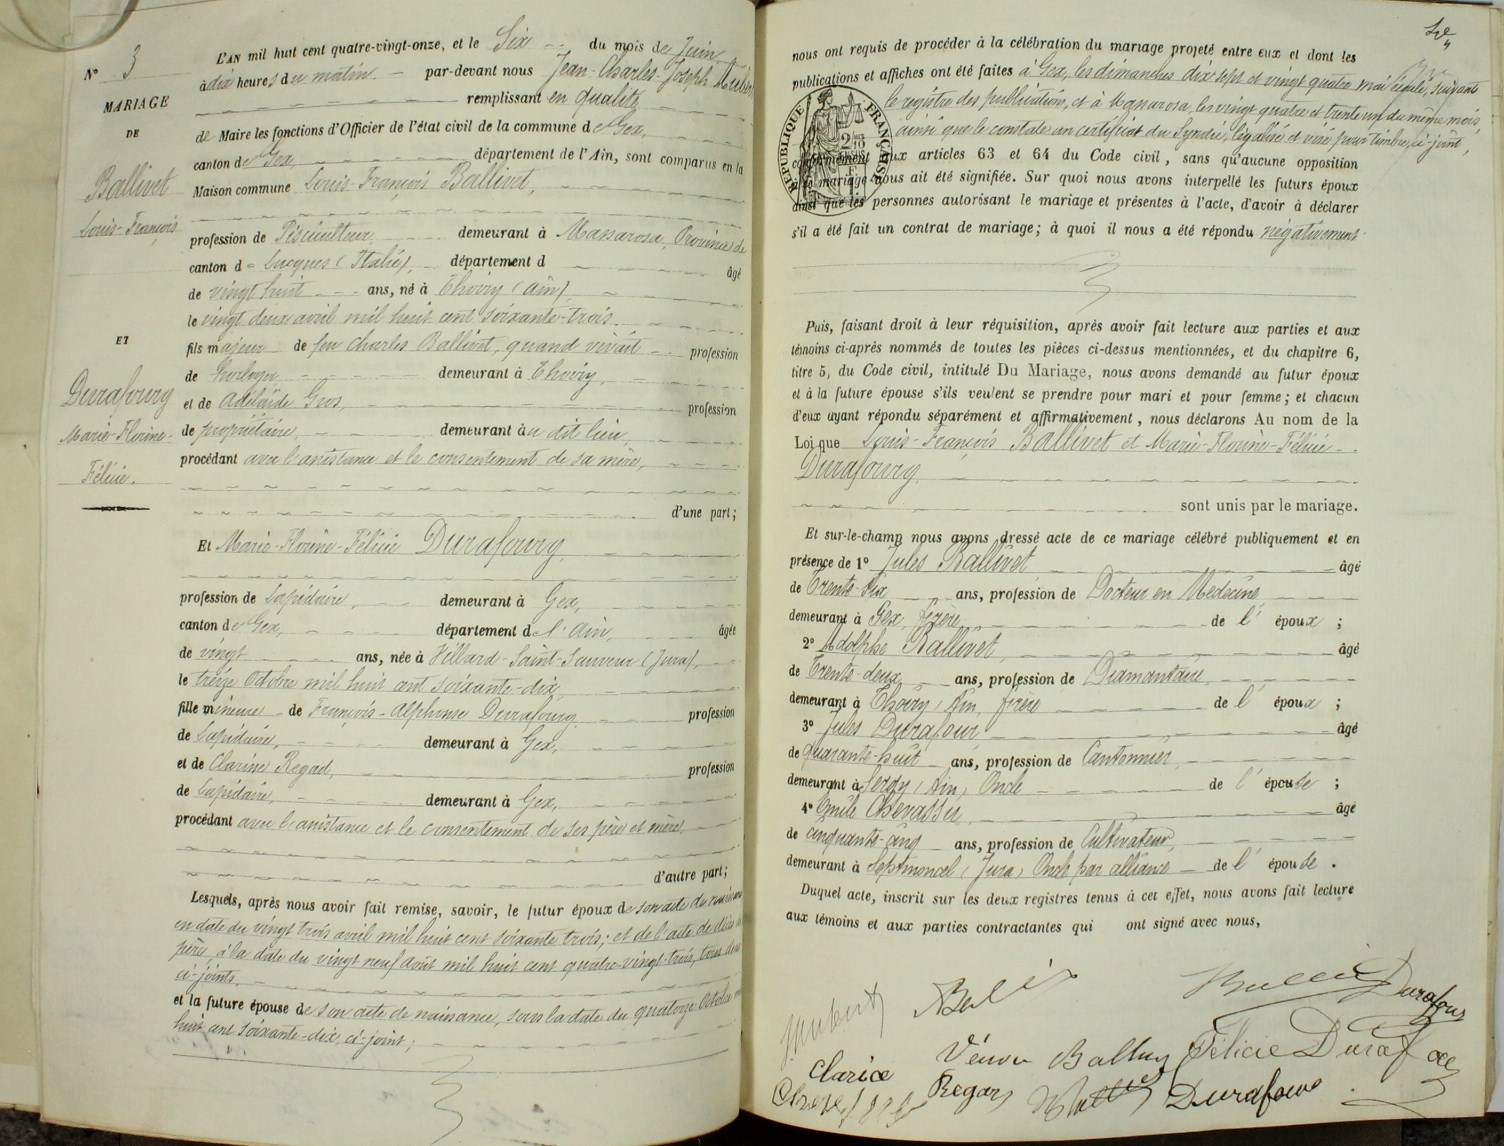 N° 3
MARIAGE
DE
Ballivet
Louis-François
ET
Durafourg
Marie-Florine-
Félicie.
L'AN mil huit cent quatre-vingt-onze, et le Six du mois de Juin
à dix heures du matin par-devant nous Jean-Charles-Joseph
remplissant en qualité
de Maire les fonctions d'Officier de l'état civil de la commune de Gex,
canton de Gex, département de l'Ain, sont comparus en la
Maison commune Louis-François Ballivet,
profession de Pisciculteur demeurant à Massarosa, Province de
canton d Lucques (Italie), département d âgé
de vingt huit ans, né à Thoiry (Ain)
le vingt deux avril mil huit cent soixante-trois
fils majeur de feu Charles Ballivet, quand vivait profession
de horloger demeurant à Thoiry,
et de Adélaïde Gros, profession
de propriétaire, demeurant au dit lieu,
procédant avec l'assistance et le consentement de sa mère,
d'une part;
Et Marie-Florine-Félicie Durafourg
profession de Lapidaire, demeurant à Gex,
canton de Gex, département de l'Ain, âgée
de vingt ans, née à Villard-Saint-Sauveur (Jura),
le treize Octobre mil huit cent soixante-dix,
fille mineure de François-Alphonse Durafourg profession
de Lapidaire, demeurant à Gex,
et de Clarine Regad, profession
de Lapidaire, demeurant à Gex,
procédant avec l'assistance et le consentement de ses père et mère,
d'autre part;
Lesquels, après nous avoir fait remise, savoir, le futur époux de son acte de naissance
en date du vingt trois avril mil huit cent soixante trois; et de l'acte de décès
père, à la date du vingt neuf août mil huit cent quatre-vingt-trois, tous deux
ci-joints.
et la future épouse de son acte de naissance, sous la date du quatorze Octobre
huit cent soixante-dix, ci-joint;
nous ont requis de procéder à la célébration du mariage projeté entre eux et dont les
publications et affiches ont été faites à Gex, les dimanches dix sept et vingt quatre mai écoulé, suivant
le registre des publications, et à Massarosa, les vingt quatre et trente un du même mois
ainsi que le constate un certificat du Syndic, légalisé et visé pour timbre, ci-joint,
RÉPUBLIQUE FRANÇAISE
conformément aux articles 63 et 64 du Code civil, sans qu'aucune opposition
mariage nous ait été signifiée. Sur quoi nous avons interpellé les futurs époux
ainsi que les personnes autorisant le mariage et présentes à l'acte, d'avoir à déclarer
s'il a été fait un contrat de mariage; à quoi il nous a été répondu négativement
Puis, faisant droit à leur réquisition, après avoir fait lecture aux parties et aux
témoins ci-après nommés de toutes les pièces ci-dessus mentionnées, et du chapitre 6,
titre 5, du Code civil, intitulé Du Mariage, nous avons demandé au futur époux
et à la future épouse s'ils veulent se prendre pour mari et pour femme; et chacun
d'eux ayant répondu séparément et affirmativement, nous déclarons Au nom de la
Loi que Louis-François Ballivet et Marie-Florine-Félicie
Durafourg
sont unis par le mariage.
Et sur-le-champ nous avons dressé acte de ce mariage célébré publiquement et en
présence de 1° Jules Ballivet âgé
de Trente-six ans, profession de Docteur en Médecine
demeurant à Gex, frère de l'époux;
2° Adolphe Ballivet, âgé
de Trente-deux ans, profession de Diamantaire
demeurant à Thoiry (Ain, frère de l'époux;
3° Jules Durafour âgé
de quarante-huit ans, profession de Cantonnier
demeurant à (Ain) Oncle de l'épouse;
4° Emile Chevassu âgé
de cinquante-cinq ans, profession de Cultivateur,
demeurant à Septmoncel (Jura) Oncle par alliance de l'épouse.
Duquel acte, inscrit sur les deux registres tenus à cet effet, nous avons fait lecture
aux témoins et aux parties contractantes qui ont signé avec nous,
Durafour
Veuve Ballivet Félicie Durafour
Clarice Regad Durafour